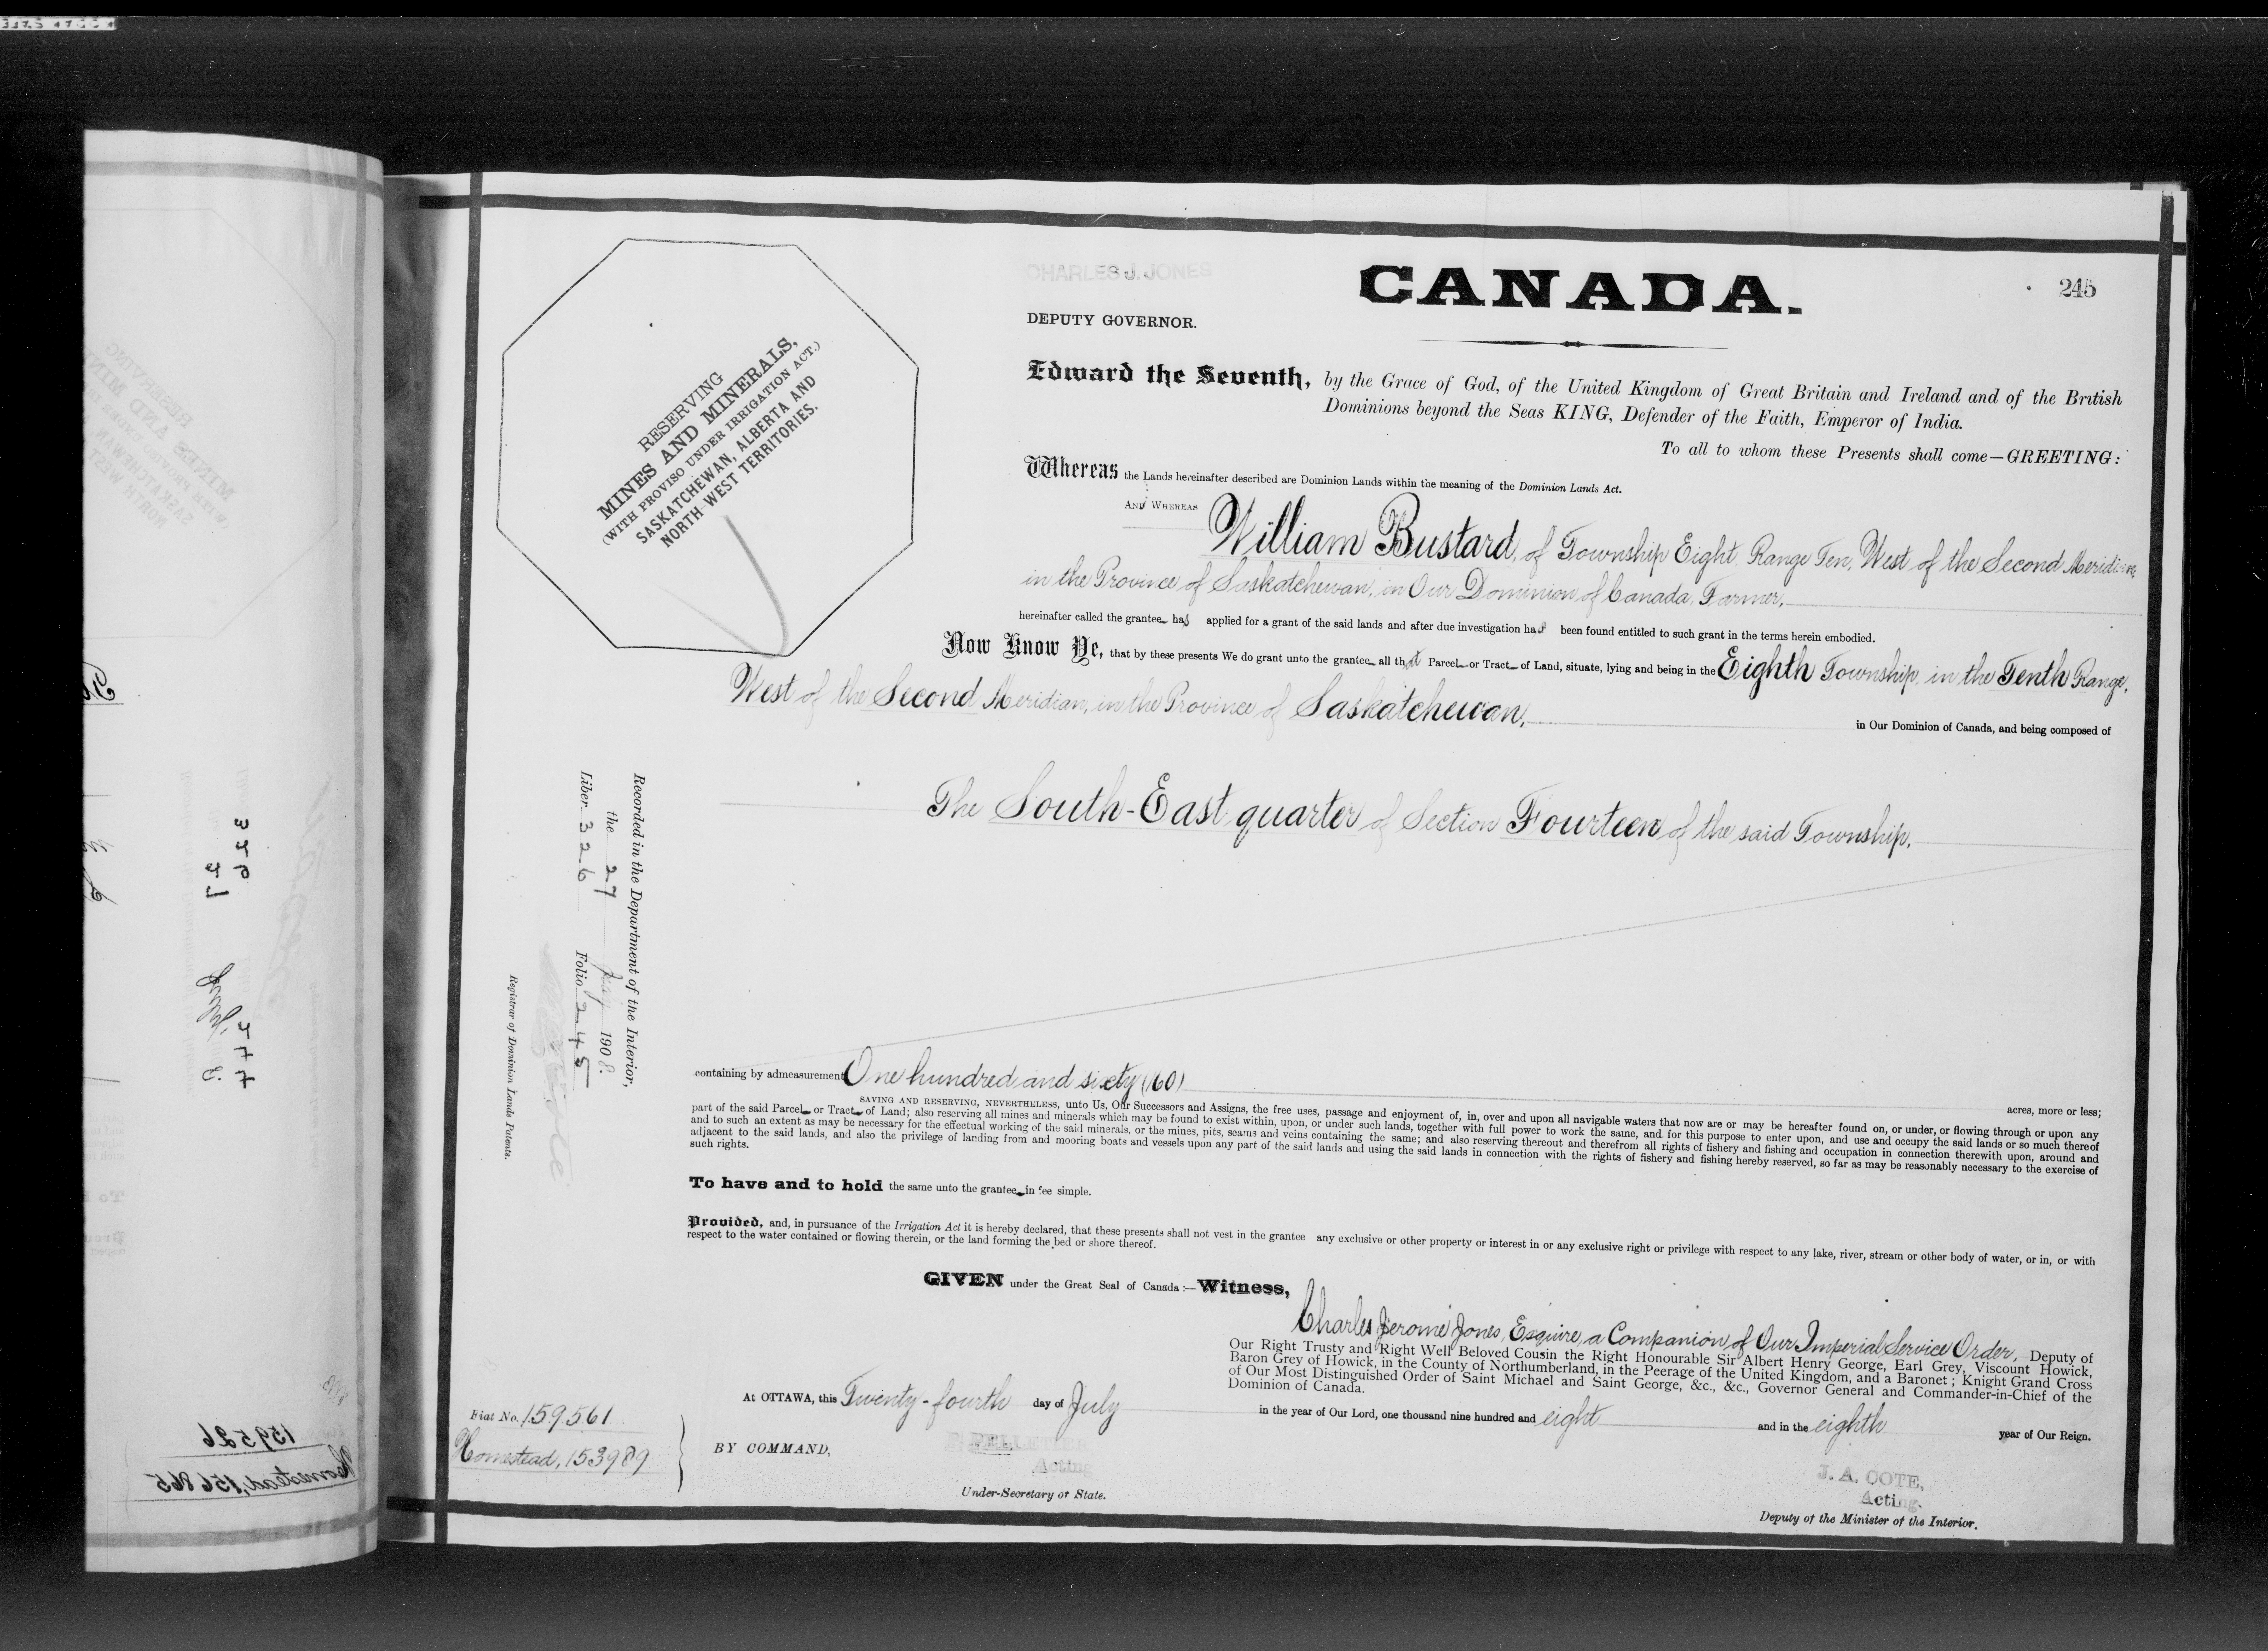 CHARLES J. JONES
CANADA.
245
DEPUTY GOVERNOR.
RESERVING
MINES AND MINERALS,
(WITH PROVISO UNDER IRRIGATION ACT.)
SASKATCHEWAN, ALBERTA AND
NORTH-WEST TERRITORIES.
Edward the Seventh, by the Grace of God, of the United Kingdom of Great Britain and Ireland and of the British
Dominions beyond the Seas KING, Defender of the Faith, Emperor of India.
To all to whom these Presents shall come—GREETING:
Whereas the Lands hereinafter described are Dominion Lands within the meaning of the Dominion Lands Act.
AND WHEREAS William Bustard, of Township Eight, Range Ten, West of the Second Meridian,
in the Province of Saskatchewan, in Our Dominion of Canada, Farmer,
hereinafter called the grantee has applied for a grant of the said lands and after due investigation has been found entitled to such grant in the terms herein embodied.
Now Know Ye, that by these presents We do grant unto the grantee all that Parcel or Tract of Land, situate, lying and being in the Eighth Township, in the Tenth Range,
West of the Second Meridian, in the Province of Saskatchewan, in Our Dominion of Canada, and being composed of
The South-East quarter of Section Fourteen of the said Township,
Recorded in the Department of the Interior,
the 27 July 1908.
Liber 326 Folio 245
Registrar of Dominion Lands Patents.
containing by admeasurement One hundred and sixty (160) acres, more or less;
SAVING AND RESERVING, NEVERTHELESS, unto Us, Our Successors and Assigns, the free uses, passage and enjoyment of, in, over and upon all navigable waters that now are or may be hereafter found on, or under, or flowing through or upon any
part of the said Parcel or Tract of Land; also reserving all mines and minerals which may be found to exist within, upon, or under such lands, together with full power to work the same, and for this purpose to enter upon, and use and occupy the said lands or so much thereof
and to such an extent as may be necessary for the effectual working of the said minerals, or the mines, pits, seams and veins containing the same; and also reserving thereout and therefrom all rights of fishery and fishing and occupation in connection therewith upon, around and
adjacent to the said lands, and also the privilege of landing from and mooring boats and vessels upon any part of the said lands and using the said lands in connection with the rights of fishery and fishing hereby reserved, so far as may be reasonably necessary to the exercise of
such rights.
To have and to hold the same unto the grantee in fee simple.
Provided, and, in pursuance of the Irrigation Act it is hereby declared, that these presents shall not vest in the grantee any exclusive or other property or interest in or any exclusive right or privilege with respect to any lake, river, stream or other body of water, or in, or with
respect to the water contained or flowing therein, or the land forming the bed or shore thereof.
GIVEN under the Great Seal of Canada:—Witness,
Charles Jerome Jones, Esquire, a Companion of Our Imperial Service Order, Deputy of
Our Right Trusty and Right Well Beloved Cousin the Right Honourable Sir Albert Henry George, Earl Grey, Viscount Howick,
Baron Grey of Howick, in the County of Northumberland, in the Peerage of the United Kingdom, and a Baronet; Knight Grand Cross
of Our Most Distinguished Order of Saint Michael and Saint George, &c., &c., Governor General and Commander-in-Chief of the
Dominion of Canada.
At OTTAWA, this Twenty-fourth day of July in the year of Our Lord, one thousand nine hundred and eight and in the eighth year of Our Reign.
Fiat No. 159561
Homestead, 153989
BY COMMAND,
P. PELLETIER
Acting
Under-Secretary of State.
J. A. COTE,
Acting.
Deputy of the Minister of the Interior.
159526
Homestead, 156865